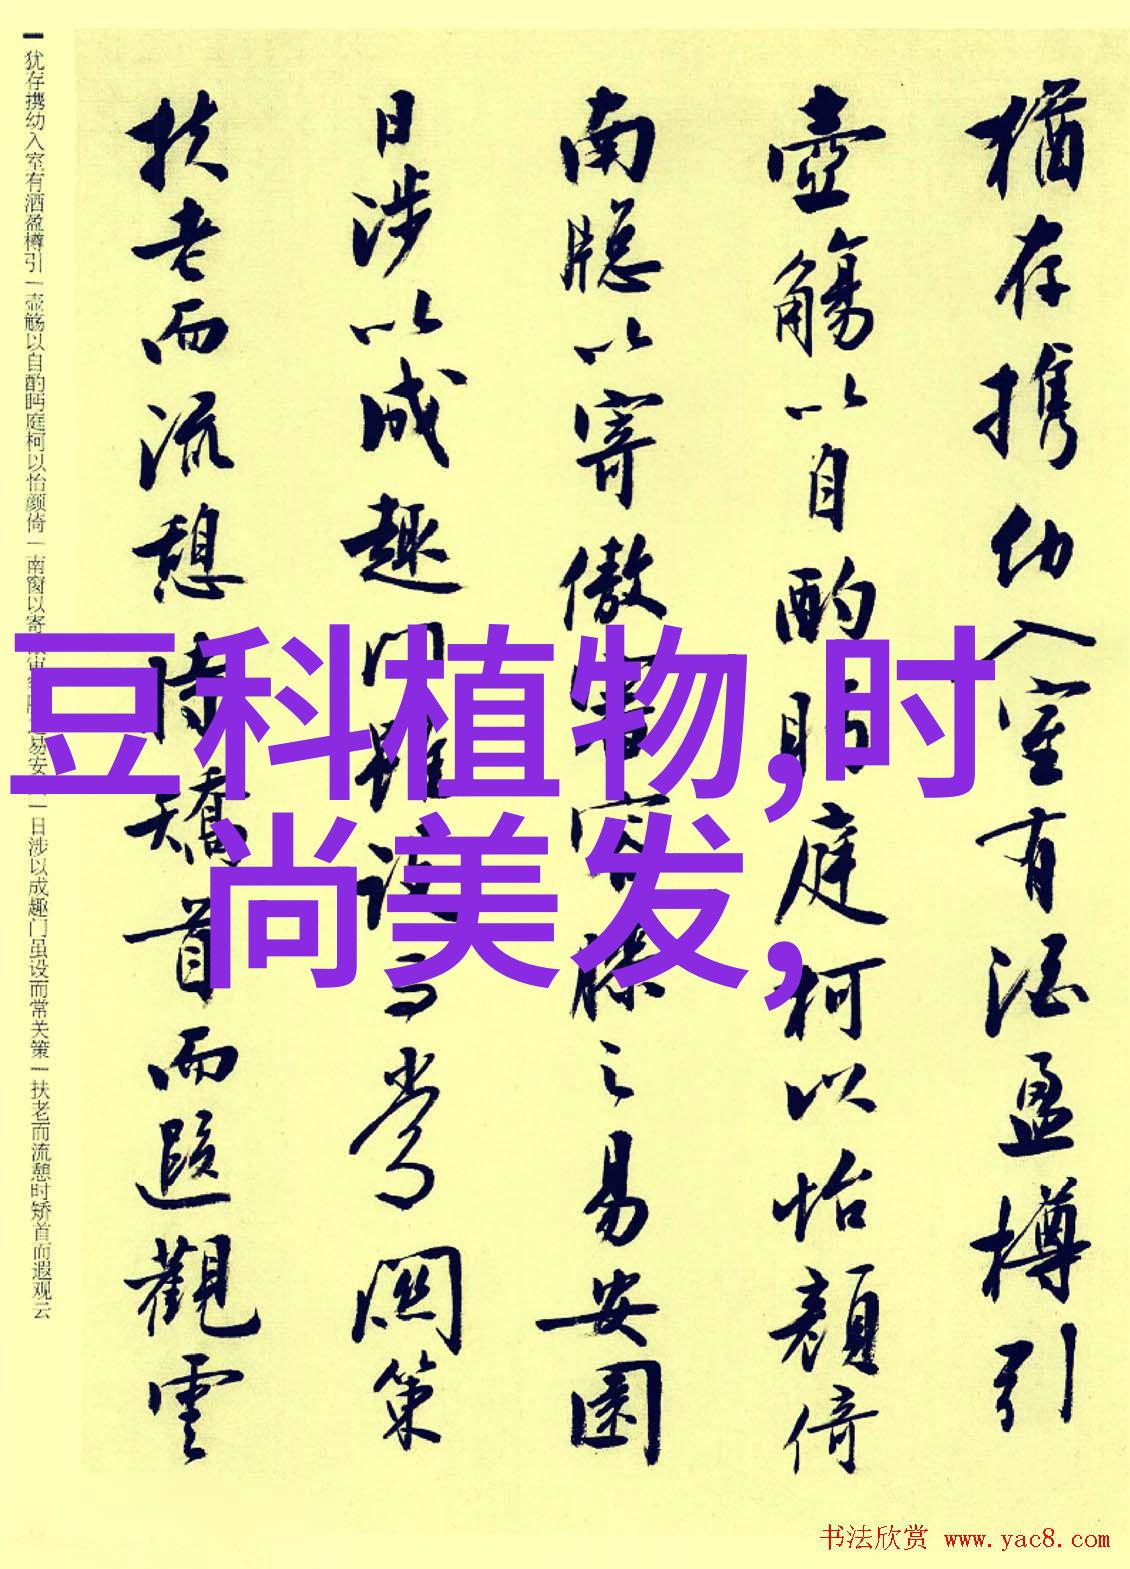 猶存携幼入室有酒盈樽引
壺觴以自酌眄庭柯以怡顔倚
南牕以寄傲審容膝之易安園
日涉以成趣門雖設而常関策
扶老而流憩時矯首而遐觀雲
犹存携幼入室有酒盈樽引一壶觞以自酌眄庭柯以怡颜倚一南窗以寄易安一日涉以成趣门虽设而常关策一扶老而流憩时矫首而遐观云
豆科植物,时
尚美发,
书法欣赏 www.yac8.com